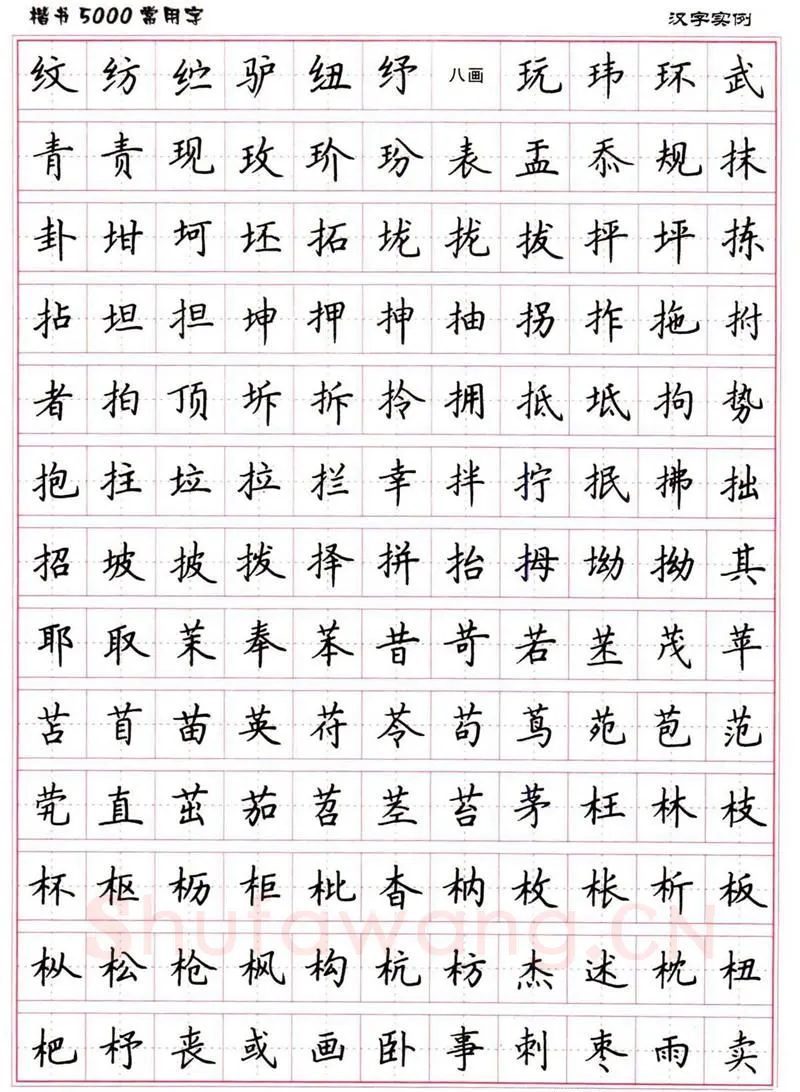 楷书5000常用字 汉字实例
纹 纺 纻 驴 纽 纾 八画 玩 玮 环 武
青 责 现 玫 玠 玢 表 盂 忝 规 抹
卦 坩 坷 坯 拓 垅 拢 拔 抨 坪 拣
拈 坦 担 坤 押 抻 抽 拐 拃 拖 拊
者 拍 顶 坼 拆 拎 拥 抵 坻 拘 势
抱 拄 垃 拉 拦 幸 拌 拧 抿 拂 拙
招 坡 披 拨 择 拚 抬 拇 坳 拗 其
耶 取 茉 奉 苯 昔 苛 若 茏 茂 苹
苫 苜 苗 英 苻 苓 苟 茑 苑 苞 范
茕 直 茁 茄 苕 茎 苔 茅 枉 林 枝
杯 枢 枥 柜 枇 杳 枘 枚 枨 析 板
枞 松 枪 枫 构 杭 枋 杰 述 枕 杻
杷 杼 丧 或 画 卧 事 刺 枣 雨 卖
Shufawang.CN